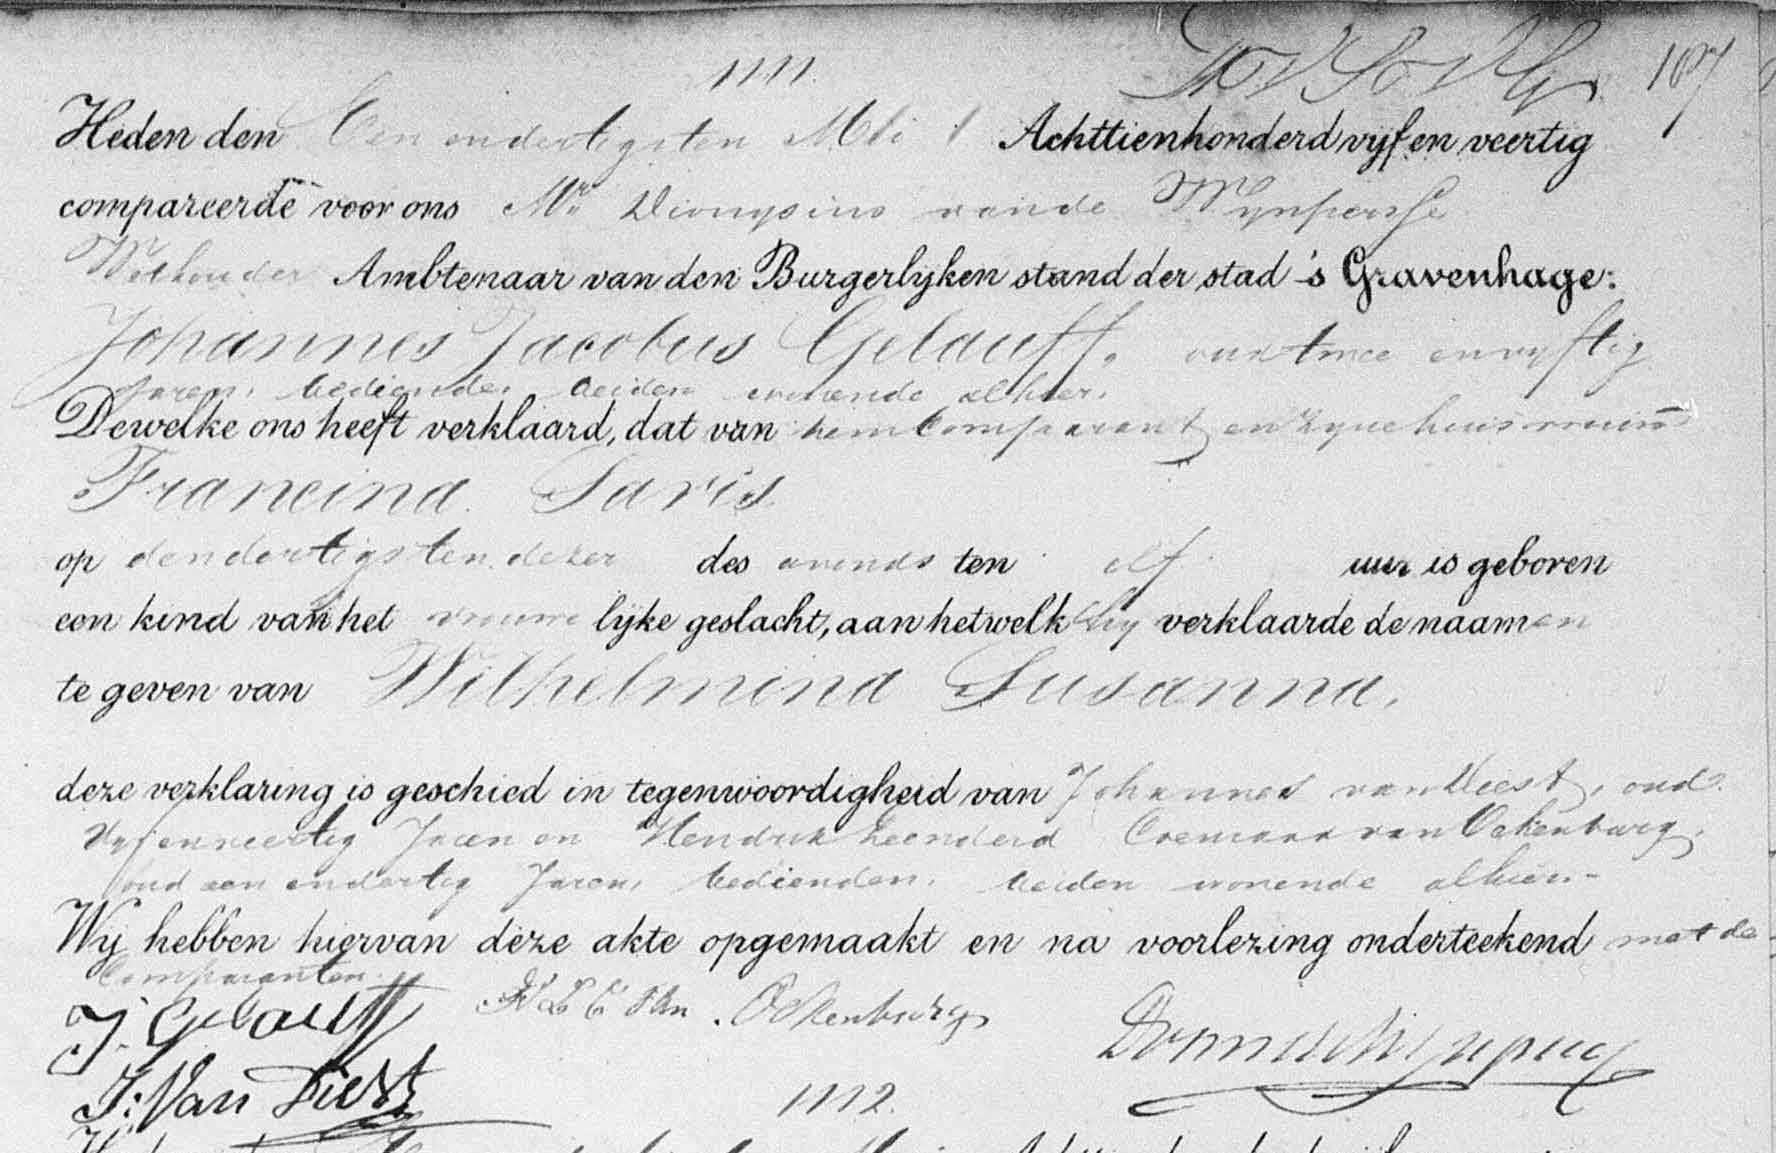 1111.
107
Heden den Een en dertigsten Mei Achttienhonderd vyf en veertig
compareerde voor ons Mr. Dionysius van de Wynpersse
Wethouder Ambtenaar van den Burgerlyken stand der stad 's Gravenhage:
Johannes Jacobus Gelauff, oud twee en vyftig
Jaren, bediende, beiden wonende alhier.
Dewelke ons heeft verklaard, dat van hem Comparant en zyne huisvrouw
Francina Saris
op den dertigsten dezer des avonds ten elf uur is geboren
een kind van het vrouwe lyke geslacht, aan hetwelk hy verklaarde de naam en
te geven van Wilhelmina Susanna,
deze verklaring is geschied in tegenwoordigheid van Johannes van Diest, oud
Vyf en veertig Jaren en Hendrik Leendert Cremer van Ockenburg,
oud een en dertig Jaren, bedienden, beiden wonende alhier.-
Wy hebben hiervan deze akte opgemaakt en na voorlezing onderteekend met de
Comparanten.
J. Gelauff H L C Van Ockenburg
J: Van Diest
1112.